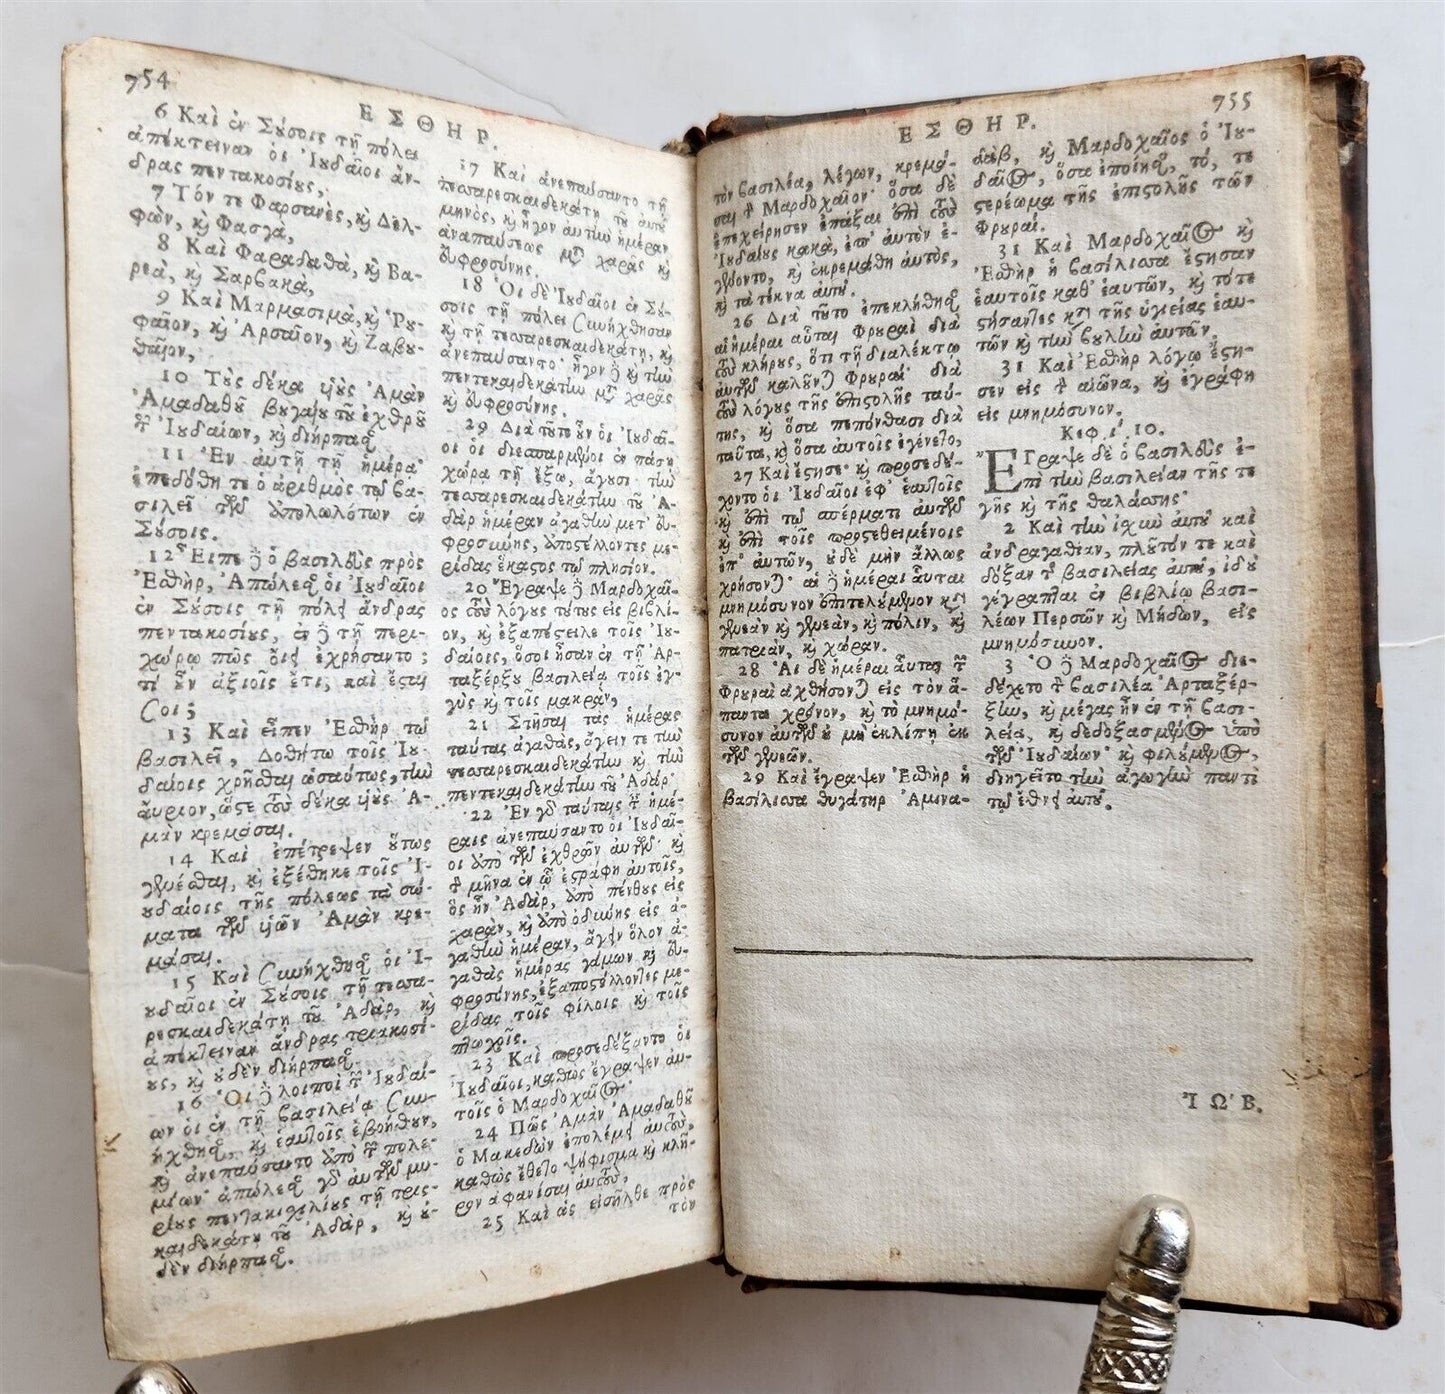 754
ΕΣΘΗΡ.
6 Καὶ ἐν Σούσοις τῇ πόλει
ἀπέκτειναν οἱ Ἰουδαῖοι ἄν-
δρας πεντακοσίους,
7 Τόν τε Φαρσανὲς, καὶ Δελ-
φὼν, καὶ Φασγὰ,
8 Καὶ Φαραδαθὰ, καὶ Βα-
ρεὰ, καὶ Σαρβακὰ,
9 Καὶ Μαρμασιμὰ, καὶ Ῥου-
φαῖον, καὶ Ἀρσαῖον, καὶ Ζαβου-
θαῖον,
10 Τοὺς δέκα υἱοὺς Ἀμὰν
Ἀμαδαθοῦ βουγαίου τοῦ ἐχθροῦ
τῶν Ἰουδαίων, καὶ διήρπασαν
11 Ἐν αὐτῇ τῇ ἡμέρᾳ
ἐπεδόθη τε ὁ ἀριθμὸς τῷ βα-
σιλεῖ τῶν ἀπολωλότων ἐν
Σούσοις.
12 Εἶπε δὲ ὁ βασιλεὺς πρὸς
Ἐσθὴρ, Ἀπώλεσαν οἱ Ἰουδαῖοι
ἐν Σούσοις τῇ πόλει ἄνδρας
πεντακοσίους, ἐν δὲ τῇ περι-
χώρῳ πῶς οἴει ἐχρήσαντο;
τί οὖν ἀξιοῖς ἔτι, καὶ ἔσται
σοι;
13 Καὶ εἶπεν Ἐσθὴρ τῷ
βασιλεῖ, Δοθήτω τοῖς Ἰου-
δαίοις χρῆσθαι ὡσαύτως, τὴν
αὔριον, ὥστε τοὺς δέκα υἱοὺς Ἀ-
μὰν κρεμάσαι.
14 Καὶ ἐπέτρεψεν οὕτως
γενέσθαι, καὶ ἐξέθηκε τοῖς Ἰ-
ουδαίοις τῆς πόλεως τὰ σώ-
ματα τῶν υἱῶν Ἀμὰν κρε-
μάσαι.
15 Καὶ συνήχθησαν οἱ Ἰ-
ουδαῖοι ἐν Σούσοις τῇ τεσσα-
ρεσκαιδεκάτῃ τοῦ Ἀδὰρ, καὶ
ἀπέκτειναν ἄνδρας τριακοσί-
ους, καὶ οὐδὲν διήρπασαν.
16 Οἱ δὲ λοιποὶ τῶν Ἰουδαί-
ων οἱ ἐν τῇ βασιλείᾳ συν-
ήχθησαν, καὶ ἑαυτοῖς ἐβοήθουν,
καὶ ἀνεπαύσαντο ἀπὸ τῶν πολε-
μίων· ἀπώλεσαν γὰρ αὐτῶν μυ-
ρίους πεντακισχιλίους τῇ τρισ-
καιδεκάτῃ τοῦ Ἀδὰρ, καὶ οὐ-
δὲν διήρπασαν.
17 Καὶ ἀνεπαύσαντο τῇ
τεσσαρεσκαιδεκάτῃ τοῦ αὐτοῦ
μηνὸς, καὶ ἦγον αὐτὴν ἡμέραν
ἀναπαύσεως μετὰ χαρᾶς καὶ
εὐφροσύνης.
18 Οἱ δὲ Ἰουδαῖοι ἐν Σού-
σοις τῇ πόλει συνήχθησαν
καὶ τῇ τεσσαρεσκαιδεκάτῃ, καὶ
ἀνεπαύσαντο· ἦγον δὲ καὶ τὴν
πεντεκαιδεκάτην μετὰ χαρᾶς
καὶ εὐφροσύνης.
29 Διὰ τοῦτο οὖν οἱ Ἰουδαῖ-
οι οἱ διεσπαρμένοι ἐν πάσῃ
χώρᾳ τῇ ἔξω, ἄγουσι τὴν
τεσσαρεσκαιδεκάτην τοῦ Ἀ-
δὰρ ἡμέραν ἀγαθὴν μετ' εὐ-
φροσύνης, ἀποστέλλοντες με-
ρίδας ἕκαστος τῷ πλησίον.
20 Ἔγραψε δὲ Μαρδοχαῖ-
ος τοὺς λόγους τούτους εἰς βιβλί-
ον, καὶ ἐξαπέστειλε τοῖς Ἰου-
δαίοις, ὅσοι ἦσαν ἐν τῇ Ἀρ-
ταξέρξου βασιλείᾳ τοῖς ἐγ-
γὺς καὶ τοῖς μακρὰν,
21 Στῆσαι τὰς ἡμέρας
ταύτας ἀγαθὰς, ἄγειν τε τὴν
τεσσαρεσκαιδεκάτην καὶ τὴν
πεντεκαιδεκάτην τοῦ Ἀδάρ·
22 Ἐν γὰρ ταύταις ταῖς ἡμέ-
ραις ἀνεπαύσαντο οἱ Ἰουδαῖ-
οι ἀπὸ τῶν ἐχθρῶν αὐτῶν· καὶ
τὸν μῆνα ἐν ᾧ ἐστράφη αὐτοῖς,
ὃς ἦν Ἀδὰρ, ἀπὸ πένθους εἰς
χαρὰν, καὶ ἀπὸ ὀδύνης εἰς ἀ-
γαθὴν ἡμέραν, ἄγειν ὅλον ἀ-
γαθὰς ἡμέρας γάμων καὶ εὐ-
φροσύνης, ἐξαποστέλλοντες με-
ρίδας τοῖς φίλοις καὶ τοῖς
πτωχοῖς.
23 Καὶ προσεδέξαντο οἱ
Ἰουδαῖοι, καθὼς ἔγραψεν αὐ-
τοῖς ὁ Μαρδοχαῖος·
24 Πῶς Ἀμὰν Ἀμαδαθοῦ
ὁ Μακεδὼν ἐπολέμει αὐτοὺς,
καθὼς ἔθετο ψήφισμα καὶ κλῆ-
ρον ἀφανίσαι αὐτοὺς,
25 Καὶ ὡς εἰσῆλθε πρὸς
τὸν
755
ΕΣΘΗΡ.
τὸν βασιλέα, λέγων, κρεμά-
σαι τὸν Μαρδοχαῖον· ὅσα δὲ
ἐπεχείρησεν ἐπάξαι ἐπὶ τοὺς
Ἰουδαίους κακὰ, ἐπ' αὐτὸν ἐ-
γένοντο, καὶ ἐκρεμάθη αὐτὸς,
καὶ τὰ τέκνα αὐτοῦ.
26 Διὰ τοῦτο ἐπεκλήθησαν
αἱ ἡμέραι αὗται Φρουραὶ διὰ
τοὺς κλήρους, ὅτι τῇ διαλέκτῳ
αὐτῶν καλοῦνται Φρουραί· διὰ
τοὺς λόγους τῆς ἐπιστολῆς ταύ-
της, καὶ ὅσα πεπόνθασι διὰ
ταῦτα, καὶ ὅσα αὐτοῖς ἐγένετο,
27 Καὶ ἔστησε· καὶ προσεδέ-
χοντο οἱ Ἰουδαῖοι ἐφ' ἑαυτοῖς
καὶ ἐπὶ τῷ σπέρματι αὐτῶν
καὶ ἐπὶ τοῖς προστεθειμένοις
ἐπ' αὐτῶν, οὐδὲ μὴν ἄλλως
χρήσονται· αἱ δὲ ἡμέραι αὗται
μνημόσυνον ἐπιτελούμενον κατὰ
γενεὰν καὶ γενεὰν, καὶ πόλιν, καὶ
πατριὰν, καὶ χώραν.
28 Αἱ δὲ ἡμέραι αὗται τῶν
Φρουραὶ ἀχθήσονται εἰς τὸν ἅ-
παντα χρόνον, καὶ τὸ μνημό-
συνον αὐτῶν οὐ μὴ ἐκλίπῃ ἐκ
τῶν γενεῶν.
29 Καὶ ἔγραψεν Ἐσθὴρ ἡ
βασίλισσα θυγάτηρ Ἀμινα-
δὰβ, καὶ Μαρδοχαῖος ὁ Ἰου-
δαῖος, ὅσα ἐποίησαν, τό, τε
στερέωμα τῆς ἐπιστολῆς τῶν
Φρουραί.
31 Καὶ Μαρδοχαῖος καὶ
Ἐσθὴρ ἡ βασίλισσα ἔστησαν
ἑαυτοῖς καθ' ἑαυτῶν, καὶ τότε
στήσαντες κατὰ τῆς ὑγιείας ἑαυ-
τῶν καὶ τὴν βουλὴν αὐτῶν.
31 Καὶ Ἐσθὴρ λόγῳ ἔστη-
σεν εἰς τὸν αἰῶνα, καὶ ἐγράφη
εἰς μνημόσυνον.
Κεφ. ι´. 10.
Ἔγραψε δὲ ὁ βασιλεὺς ἐ-
πὶ τὴν βασιλείαν τῆς τε
γῆς καὶ τῆς θαλάσσης·
2 Καὶ τὴν ἰσχὺν αὐτοῦ καὶ
ἀνδραγαθίαν, πλοῦτόν τε καὶ
δόξαν τῆς βασιλείας αὐτοῦ, ἰδοὺ
γέγραπται ἐν βιβλίῳ βασι-
λέων Περσῶν καὶ Μήδων, εἰς
μνημόσυνον.
3 Ὁ δὲ Μαρδοχαῖος διε-
δέχετο τὸν βασιλέα Ἀρταξέρ-
ξην, καὶ μέγας ἦν ἐν τῇ βασι-
λείᾳ, καὶ δεδοξασμένος ὑπὸ
τῶν Ἰουδαίων· καὶ φιλούμενος,
διηγεῖτο τὴν ἀγωγὴν παντὶ
τῷ ἔθνει αὐτοῦ.
ἸΩ´Β.